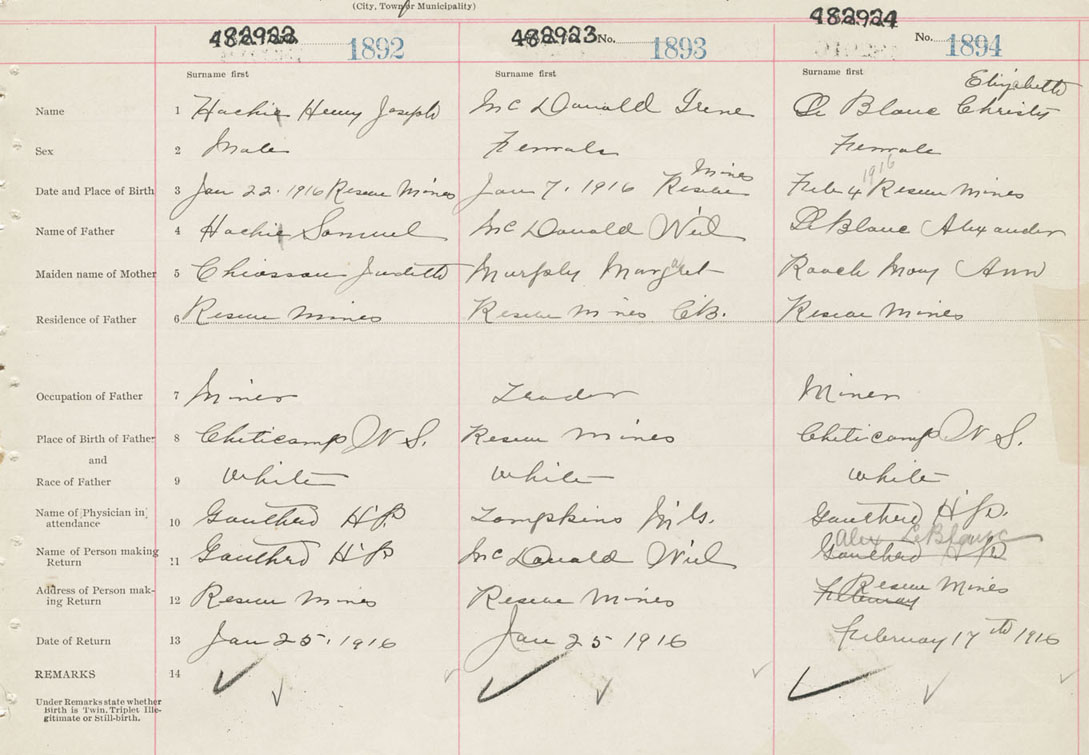 (City, Town or Municipality)
482922 1892 482923 No. 1893 482924 No. 1894
Surname first Surname first Surname first
Elizabeth
Name 1 Hachie Henry Joseph Mc Donald Irene Le Blanc Christy
Sex 2 Male Female Female
1916
Mines
Date and Place of Birth 3 Jan 22. 1916 Reserve Mines Jan 7. 1916 Reserve Feb 4 Reserve Mines
Name of Father 4 Hachie Samuel Mc Donald Neil Le Blanc Alexander
Maiden name of Mother 5 Chiasson Judette Murphy Margaret Roach Mary Ann
Residence of Father 6 Reserve Mines Reserve Mines C.B. Reserve Mines
Occupation of Father 7 Miner Miner
Place of Birth of Father 8 Cheticamp N S. Reserve Mines Cheticamp N S.
and
Race of Father 9 White White White
Name of Physician in attendance 10 H P. Tompkins M.G. H P.
Alex LeBlanc
Name of Person making Return 11 H P Mc Donald Neil
Reserve Mines
Address of Person making Return 12 Reserve Mines Reserve Mines
Date of Return 13 Jan 25. 1916 Jan 25 1916 February 17th 1916
REMARKS 14
Under Remarks state whether
Birth is Twin, Triplet Ille-
gitimate or Still-birth.